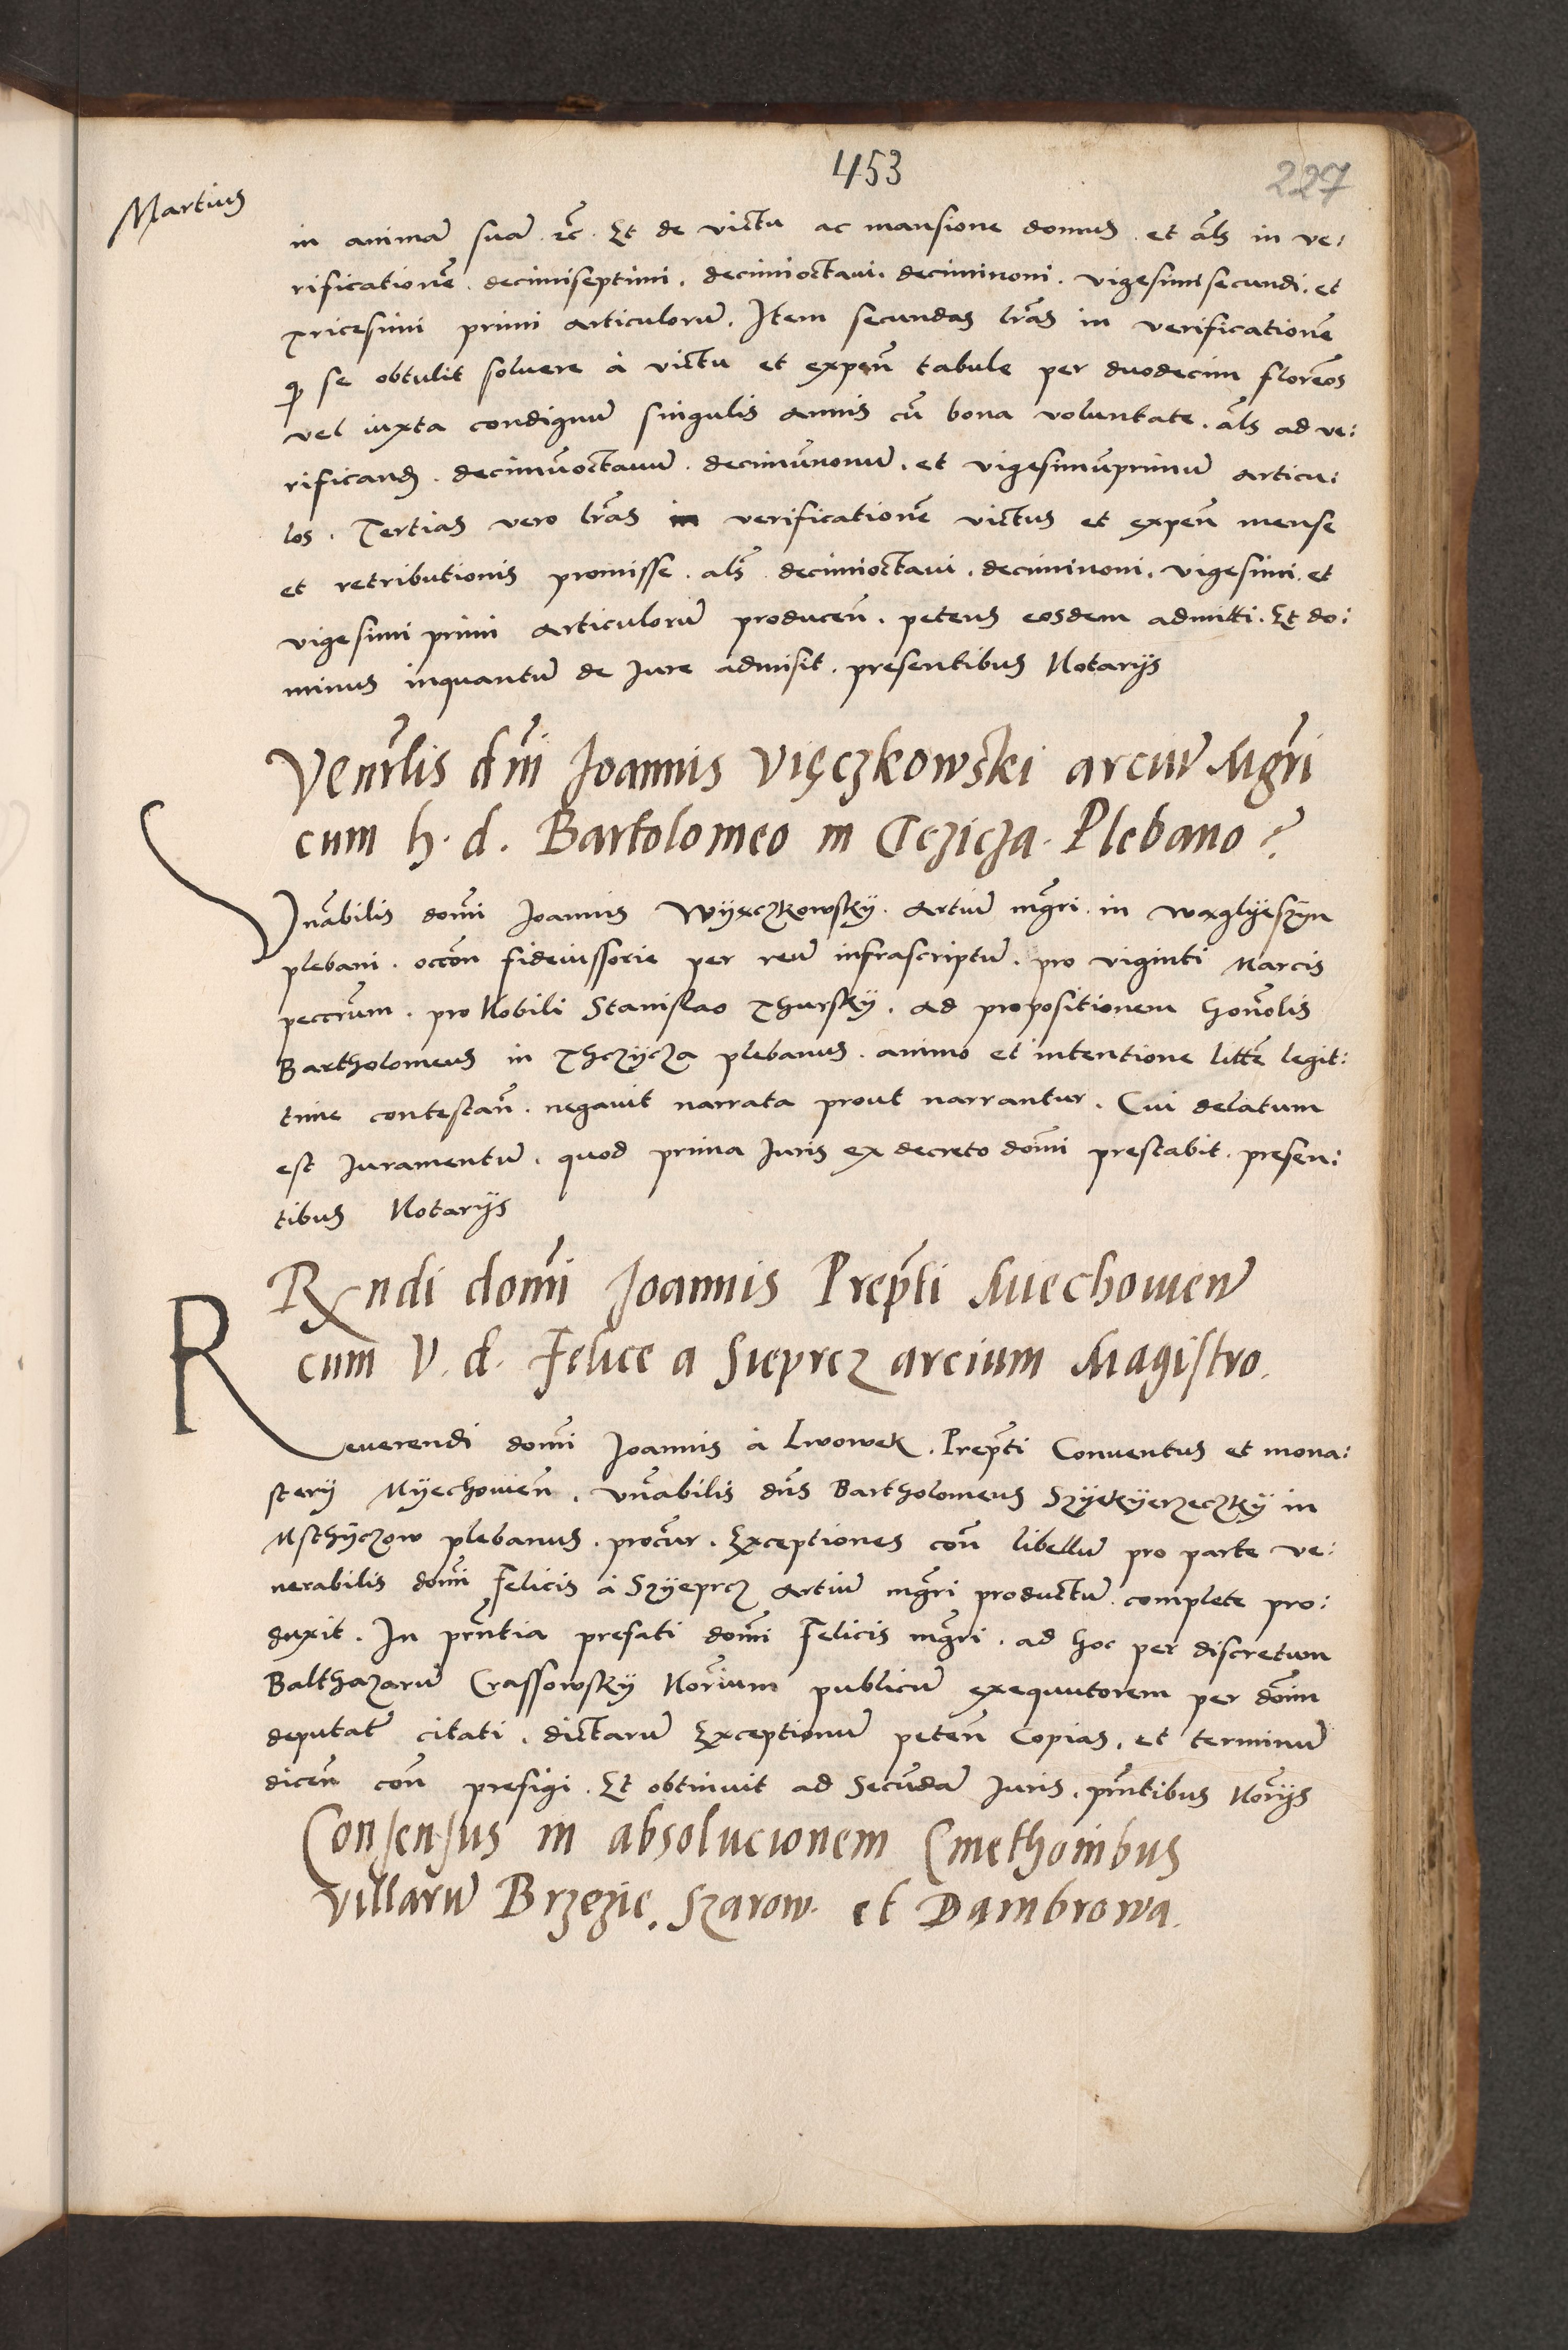 453
227
Martius
in animā suā ꝛc̄. Et de victu ac mansione domus. et al̄s in ve:
rificationē. decimiseptimi. decimioctaui. deciminoni. vigesimisecundi. et
Tricesimi primi articulorū. Item secundas l̄ras in verificationē
ꝙ se obtulit soluere à victu et expen̄ tabule per duodecim florēos
vel iuxta condignū singulis annis cū bona voluntate. al̄s ad ve:
rificand. decimūoctauū. decimūnonū. et vigesimūprimū articu:
los. Tertias vero l̄ras in verificationē victus et expen̄ mense
et retributionis promisse. al̄s decimioctaui. deciminoni. vigesimi. et
vigesimi primi articulorū producen̄. petens eosdem admitti. Et do:
minus inquantū de Jure admisit. presentibus Notarijs
Venr̄lis dn̄i Joannis Vięczkowski arciū Mgr̄i
cum h. d. Bartolomeo in Czicza. Plebano
Vn̄abilis domī Joannis Wyączkowsky. Artiū mgr̄i. in waglyeszyn
plebani. occōn fideiussorie per reū infrascriptū. pro viginti Marcis
peccrūm. pro Nobili Stanislao Thursky. ad propositionem honōlis
Bartholomeus in Thczycza plebanus. animo et intentione litt̄e legit:
time contestan̄. negauit narrata prout narrantur. Cui delatum
est Juramentū. quod prima Juris ex decreto domī prestabit. presen:
tibus Notarijs
Rx̄ndi domī Joannis Prep̄ti Miechowien̄
cum V. d. Felice a Sieprcz arcium Magistro.
Reuerendi domī Joannis à Lwowek. Prep̄ti Conuentus et mona:
sterij Myechouien̄. vn̄abilis dn̄s Bartholomeus Szyekyerzeczky in
Msthyczow plebanus. procur̄. Exceptiones con̄ libellū pro parte ve:
nerabilis domī Felicis à Szyeprcz Artiū mgr̄i productū complete pro:
duxit. In prn̄tia prefati domī Felicis mgr̄i. ad hoc per discretum
Balthazarū Crassowsky Norīum publicū exequutorem per dōim
deputatū citati. dictarū Exceptionū peten̄ Copias. et terminū
dicen̄ con̄ prefigi. Et obtinuit ad Secūdā Juris. prn̄tibus Norījs
Consensus in absolucionem Cmethonibus
villarū Brzezie. Szarow. et Dambrowa.